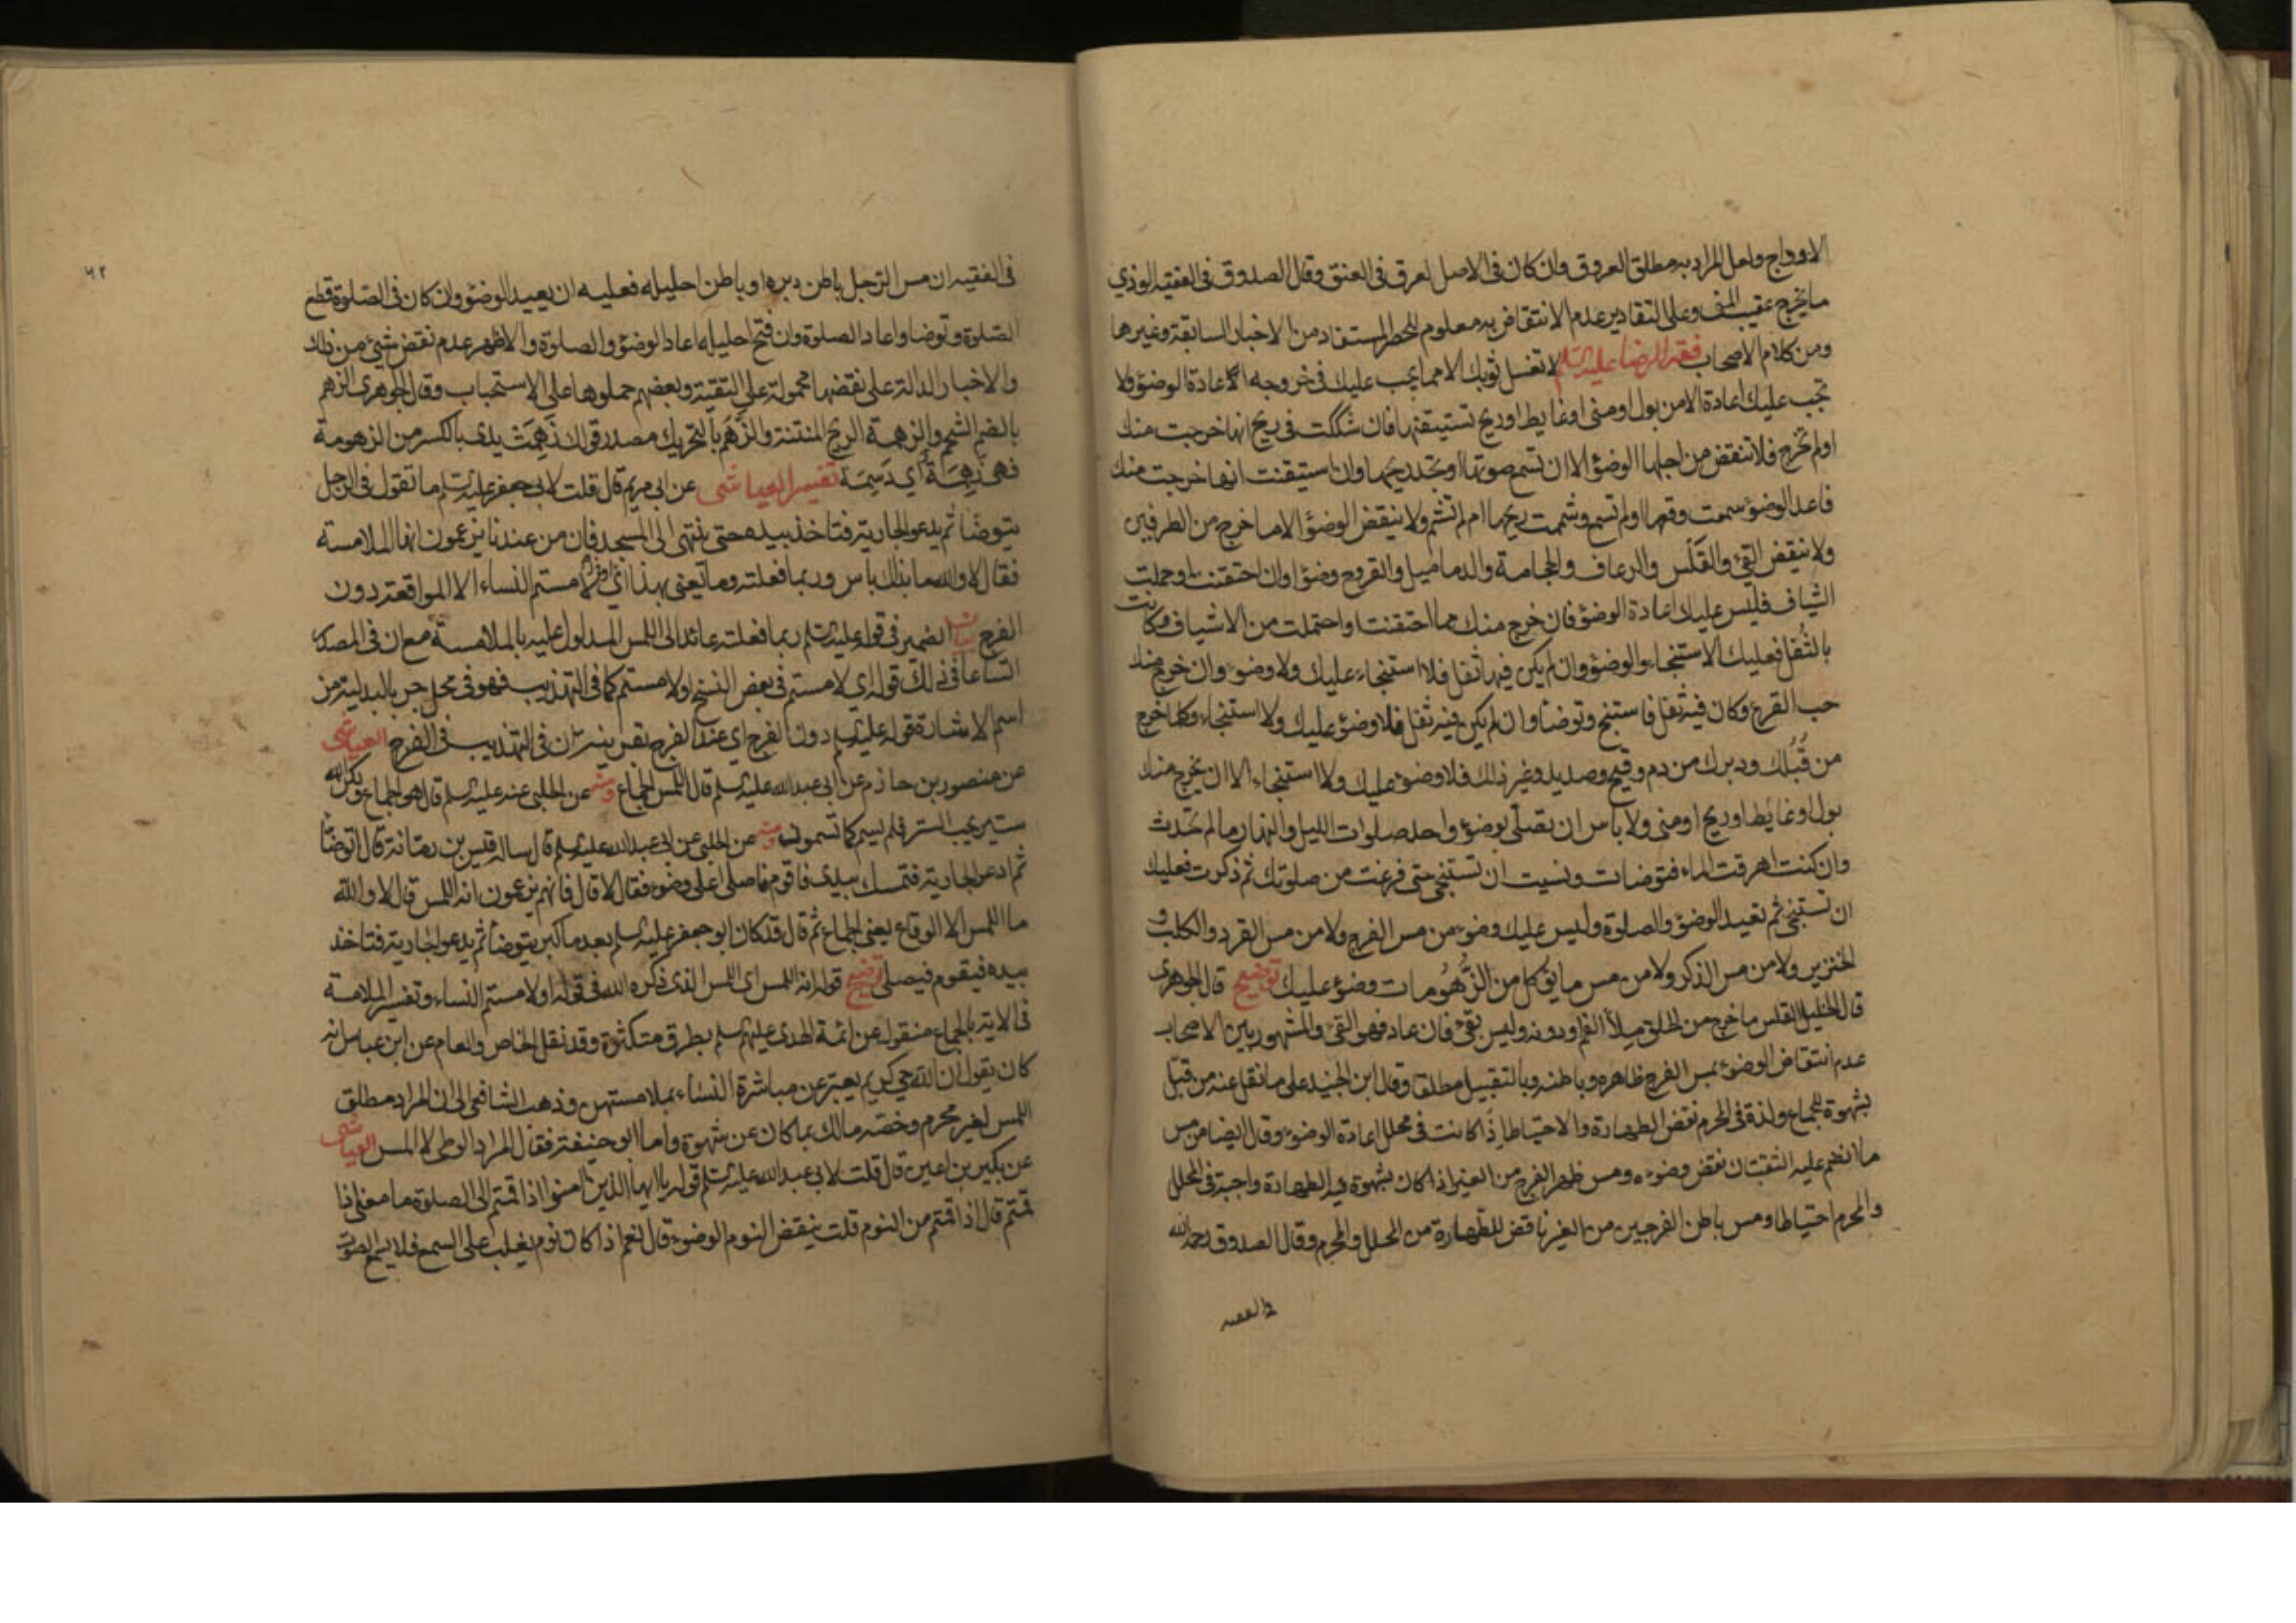 الاوداج ولعل المراد به مطلق العروق وان كان فى الاصل لعرق فى العنق وقال الصدوق فى الفقيه الوذي
ما يخرج عقيب المنى وعلى التقادير عدم الانتقاض به معلوم للحصر المستفاد من الاخبار السابقة وغيرها
ومن كلام الاصحاب فقه الرضا عليه السلم لا تغسل ثوبك الا مما يجب عليك فى خروجه اعادة الوضؤ ولا
تجب عليك اعادة الا من بول او منى او غايط او ريح تستيقنها فان شككت فى ريح انها خرجت منك
اولم تخرج فلا تنقض من اجلها الوضؤ الا ان تسمع صوتها او تجد ريحها وان استيقنت انها خرجت منك
فاعد الوضؤ سمعت وقعها اولم تسمع وشممت ريحها ام لم تشم ولا ينقض الوضؤ الا ما خرج من الطرفين
ولا ينقض القئ والقلس والرعاف والحجامة والدماميل والقروح وضؤا وان احتقنت او حملت
الشياف فليس عليك اعادة الوضؤ فان خرج منك مما احتقنت واحتملت من الاشياف وكانت
بالثفل فعليك الاستنجاء والوضؤ وان لم يكن فيها ثفل فلا استنجاء عليك ولا وضوء وان خرج منك
حب القرع وكان فيه ثفل فاستنج وتوضا وان لم يكن فيه ثفل فلا وضؤ عليك ولا استنجاء وكلما خرج
من قبلك ودبرك من دم وقيح وصديد وغير ذلك فلا وضوء عليك ولا استنجاء الا ان يخرج منك
بول او غايط او ريح او منى ولا باس ان تصلى بوضؤ واحد صلوات الليل والنهار ما لم تحدث
وان كنت اهرقت الماء فتوضات ونسيت ان تستنجى حتى فرغت من صلوتك ثم ذكرت فعليك
ان تستنجى ثم تعيد الوضؤ والصلوة وليس عليك وضوء من مس الفرج ولا من مس القرد والكلب و
الخنزير ولا من مس الذكر ولا من مس ما يؤكل من الزهومات وضؤ عليك توضيح قال الجوهرى
قال الخليل القلس ما خرج من الحلق ملأ الفم او دونه وليس بقئ فان عاد فهو القئ والمشهور بين الاصحاب
عدم انتقاض الوضوء بمس الفرج ظاهره وباطنه وبالتقبيل مطلقا وقال ابن الجنيد على ما نقل عنه من قبّل
بشهوة للجماع ولذة فى المحرم نقض الطهارة والاحتياط اذا كانت فى محلل اعادة الوضوء وقال ايضا من مس
ما انضم عليه الثقبتان نقض وضوءه ومس ظهر الفرج من الغير اذا كان بشهوة فيه الطهارة واجبة فى المحلل
والمحرم احتياطا ومس باطن الفرجين من الغير ناقض للطهارة من المحلل والمحرم وقال الصدوق رحمه الله
فى الفقيه
٦٢
فى الفقيه ان مس الرجل باطن دبره او باطن احليله فعليه ان يعيد الوضؤ وان كان فى الصلوة قطع
الصلوة وتوضا واعاد الصلوة وان فتح احليله اعاد الوضؤ والصلوة والاظهر عدم نقض شئ من ذلك
والاخبار الدالة على نقضها محمولة على التقية وبعضهم حملوها على الاستحباب وقال الجوهرى الزهم
بالضم الشحم والزهمة الريح المنتنة والزَّهَم بالتحريك مصدر قولك زَهِمَتْ يدى بالكسر من الزهومة
فهى زَهِمَة أي دَسِمَة تفسير العياشى عن ابى مريم قال قلت لابى جعفر عليه السلم ما تقول فى الرجل
يتوضا ثم يدعو الجارية فتاخذ بيده حتى ينتهى الى المسجد فان من عندنا يزعمون انها الملامسة
فقال لا والله ما بذلك باس وربما فعلته وما يعنى بهذا اى لامستم النساء الا المواقعة دون
الفرج بيان الضمير فى قوله عليه السلم ربما فعلته عائد الى اللمس المدلول عليه بالملامسة مع ان فى المصدر
اتساعا فى ذلك قوله اي لامستم فى بعض النسخ اولامستم كما فى التهذيب فهو فى محل جر بالبدلية من
اسم الاشارة قوله عليه السلم دون الفرج اي عند الفرج بقرينة ان فى التهذيب فى الفرج العياشى
عن منصور بن حازم عن ابى عبد الله عليه السلم قال اللمس الجماع ومنه عن الحلبى عنه عليه السلم قال هو الجماع ولكن الله
ستير يحب الستر فلم يسم كما تسمون ومنه عن الحلبى عن ابى عبد الله عليه السلم قال ساله قيس بن رمانة قال اتوضا
ثم ادعو الجارية فتمسك بيدى فاقوم فاصلى اعلى وضوء فقال لا قال فانهم يزعمون انه اللمس قال لا والله
ما اللمس الا الوقاع يعنى الجماع ثم قال قد كان ابو جعفر عليه السلم بعد ما كبر يتوضأ ثم يدعو الجارية فتاخذ
بيده فيقوم فيصلى توضيح قوله انه اللمس اى اللمس الذى ذكره الله فى قوله اولامستم النساء وتفسير الملامسة
فى الاية بالجماع منقول عن ائمة الهدى عليهم السلم بطرق متكثرة وقد نقل الخاص والعام عن ابن عباس انه
كان يقول ان الله حي كريم يعبر عن مباشرة النساء بملامستهن وذهب الشافعى الى ان المراد مطلق
اللمس لغير محرم وخصه مالك بما كان عن شهوة واما ابو حنيفة فقال المراد الوطى لا المس العياشى
عن بكير بن اعين قال قلت لابى عبد الله عليه السلم قوله يا ايها الذين آمنوا اذا قمتم الى الصلوة ما معنى اذا
قمتم قال اذا قمتم من النوم قلت ينقض النوم الوضوء قال نعم اذا كان نوم يغلب على السمع فلا يسمع الصوت